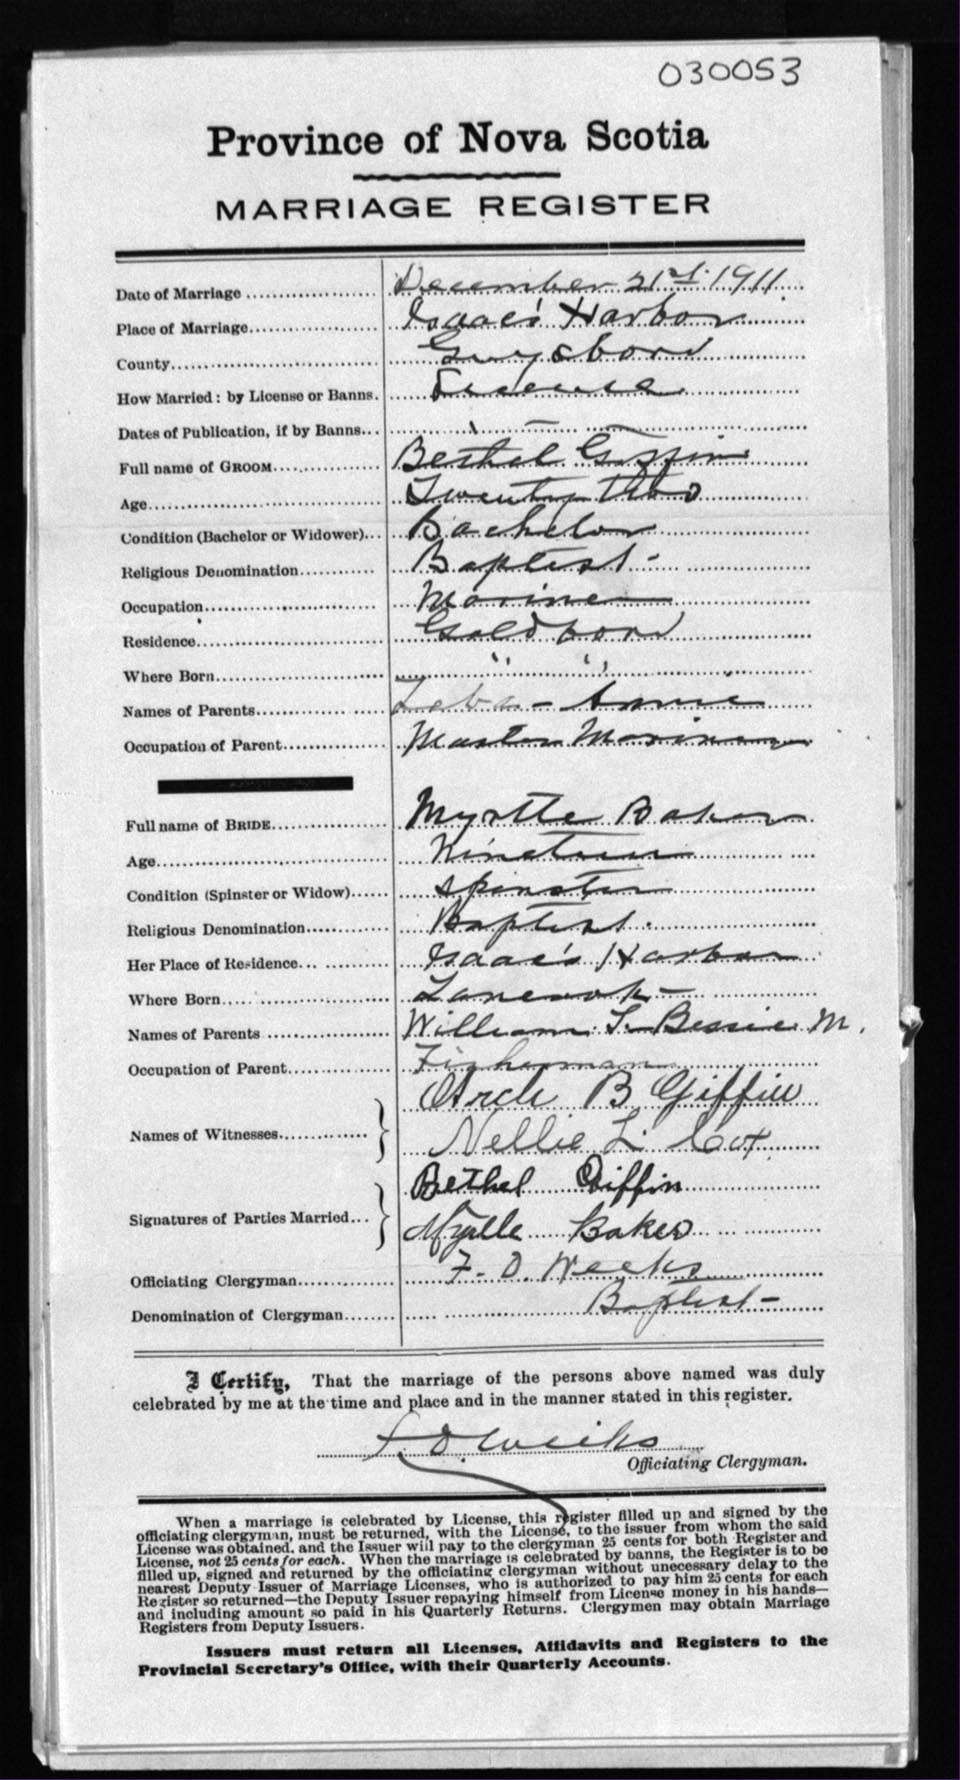 030053
Province of Nova Scotia
MARRIAGE REGISTER
Date of Marriage December 21st 1911
Place of Marriage Isaac's Harbor
County Guysboro
How Married: by License or Banns. License
Dates of Publication, if by Banns
Full name of GROOM Bethel Giffin
Age Twenty two
Condition (Bachelor or Widower) Bachelor
Religious Denomination Baptist
Occupation Mariner
Residence Goldboro
Where Born " "
Names of Parents - Annie
Occupation of Parent Master Mariner
Full name of BRIDE Myrtle Baker
Age Nineteen
Condition (Spinster or Widow) Spinster
Religious Denomination Baptist
Her Place of Residence Isaac's Harbor
Where Born
Names of Parents William T. Bessie M.
Occupation of Parent Fisherman
B Giffin
Names of Witnesses
Nellie L. Cox
Bethel Giffin
Signatures of Parties Married
Myrtle Baker
Officiating Clergyman F. O. Weeks
Denomination of Clergyman Baptist
I Certify, That the marriage of the persons above named was duly
celebrated by me at the time and place and in the manner stated in this register.
F. O. Weeks
Officiating Clergyman.
When a marriage is celebrated by License, this register filled up and signed by the
officiating clergyman, must be returned, with the License, to the issuer from whom the said
License was obtained, and the Issuer will pay to the clergyman 25 cents for both Register and
License, not 25 cents for each. When the marriage is celebrated by banns, the Register is to be
filled up, signed and returned by the officiating clergyman without unecessary delay to the
nearest Deputy Issuer of Marriage Licenses, who is authorized to pay him 25 cents for each
Register so returned—the Deputy Issuer repaying himself from License money in his hands—
and including amount so paid in his Quarterly Returns. Clergymen may obtain Marriage
Registers from Deputy Issuers.
Issuers must return all Licenses, Affidavits and Registers to the
Provincial Secretary's Office, with their Quarterly Accounts.